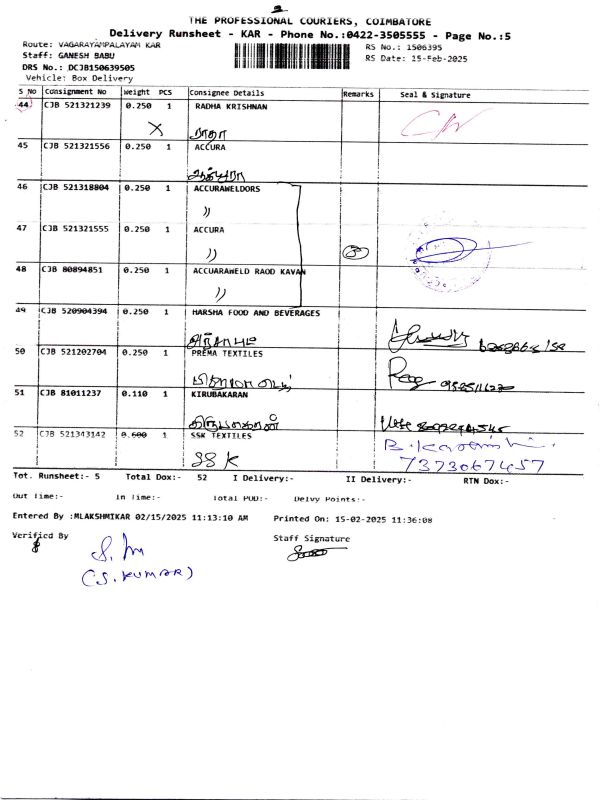 THE PROFESSIONAL COURIERS, COIMBATORE
Delivery Runsheet - KAR - Phone No.:0422-3505555 - Page No.:5
Route: VAGARAYAMPALAYAM KAR
RS No.: 1506395
Staff: GANESH BABU
RS Date: 15-Feb-2025
DRS No.: DCJB150639505
Vehicle: Box Delivery
S No Consignment No Weight PCS Consignee Details Remarks Seal & Signature
44 CJB 521321239 0.250 1 RADHA KRISHNAN
X ராதா
45 CJB 521321556 0.250 1 ACCURA
46 CJB 521318804 0.250 1 ACCURAWELDORS
))
47 CJB 521321555 0.250 1 ACCURA
)) 3
48 CJB 80894851 0.250 1 ACCUARAWELD RAOD KAVAN
))
49 CJB 520904394 0.250 1 HARSHA FOOD AND BEVERAGES
50 CJB 521202704 0.250 1 PREMA TEXTILES
51 CJB 81011237 0.110 1 KIRUBAKARAN
கிருபாகரன்
52 CJB 521343142 0.600 1 SSK TEXTILES
SSK 7373067457
Tot. Runsheet:- 5 Total Dox:- 52 I Delivery:- II Delivery:- RTN Dox:-
Out Time:- In Time:- Total POD:- Delvy Points:-
Entered By :MLAKSHMIKAR 02/15/2025 11:13:10 AM Printed On: 15-02-2025 11:36:08
Verified By Staff Signature
(S. KUMAR)